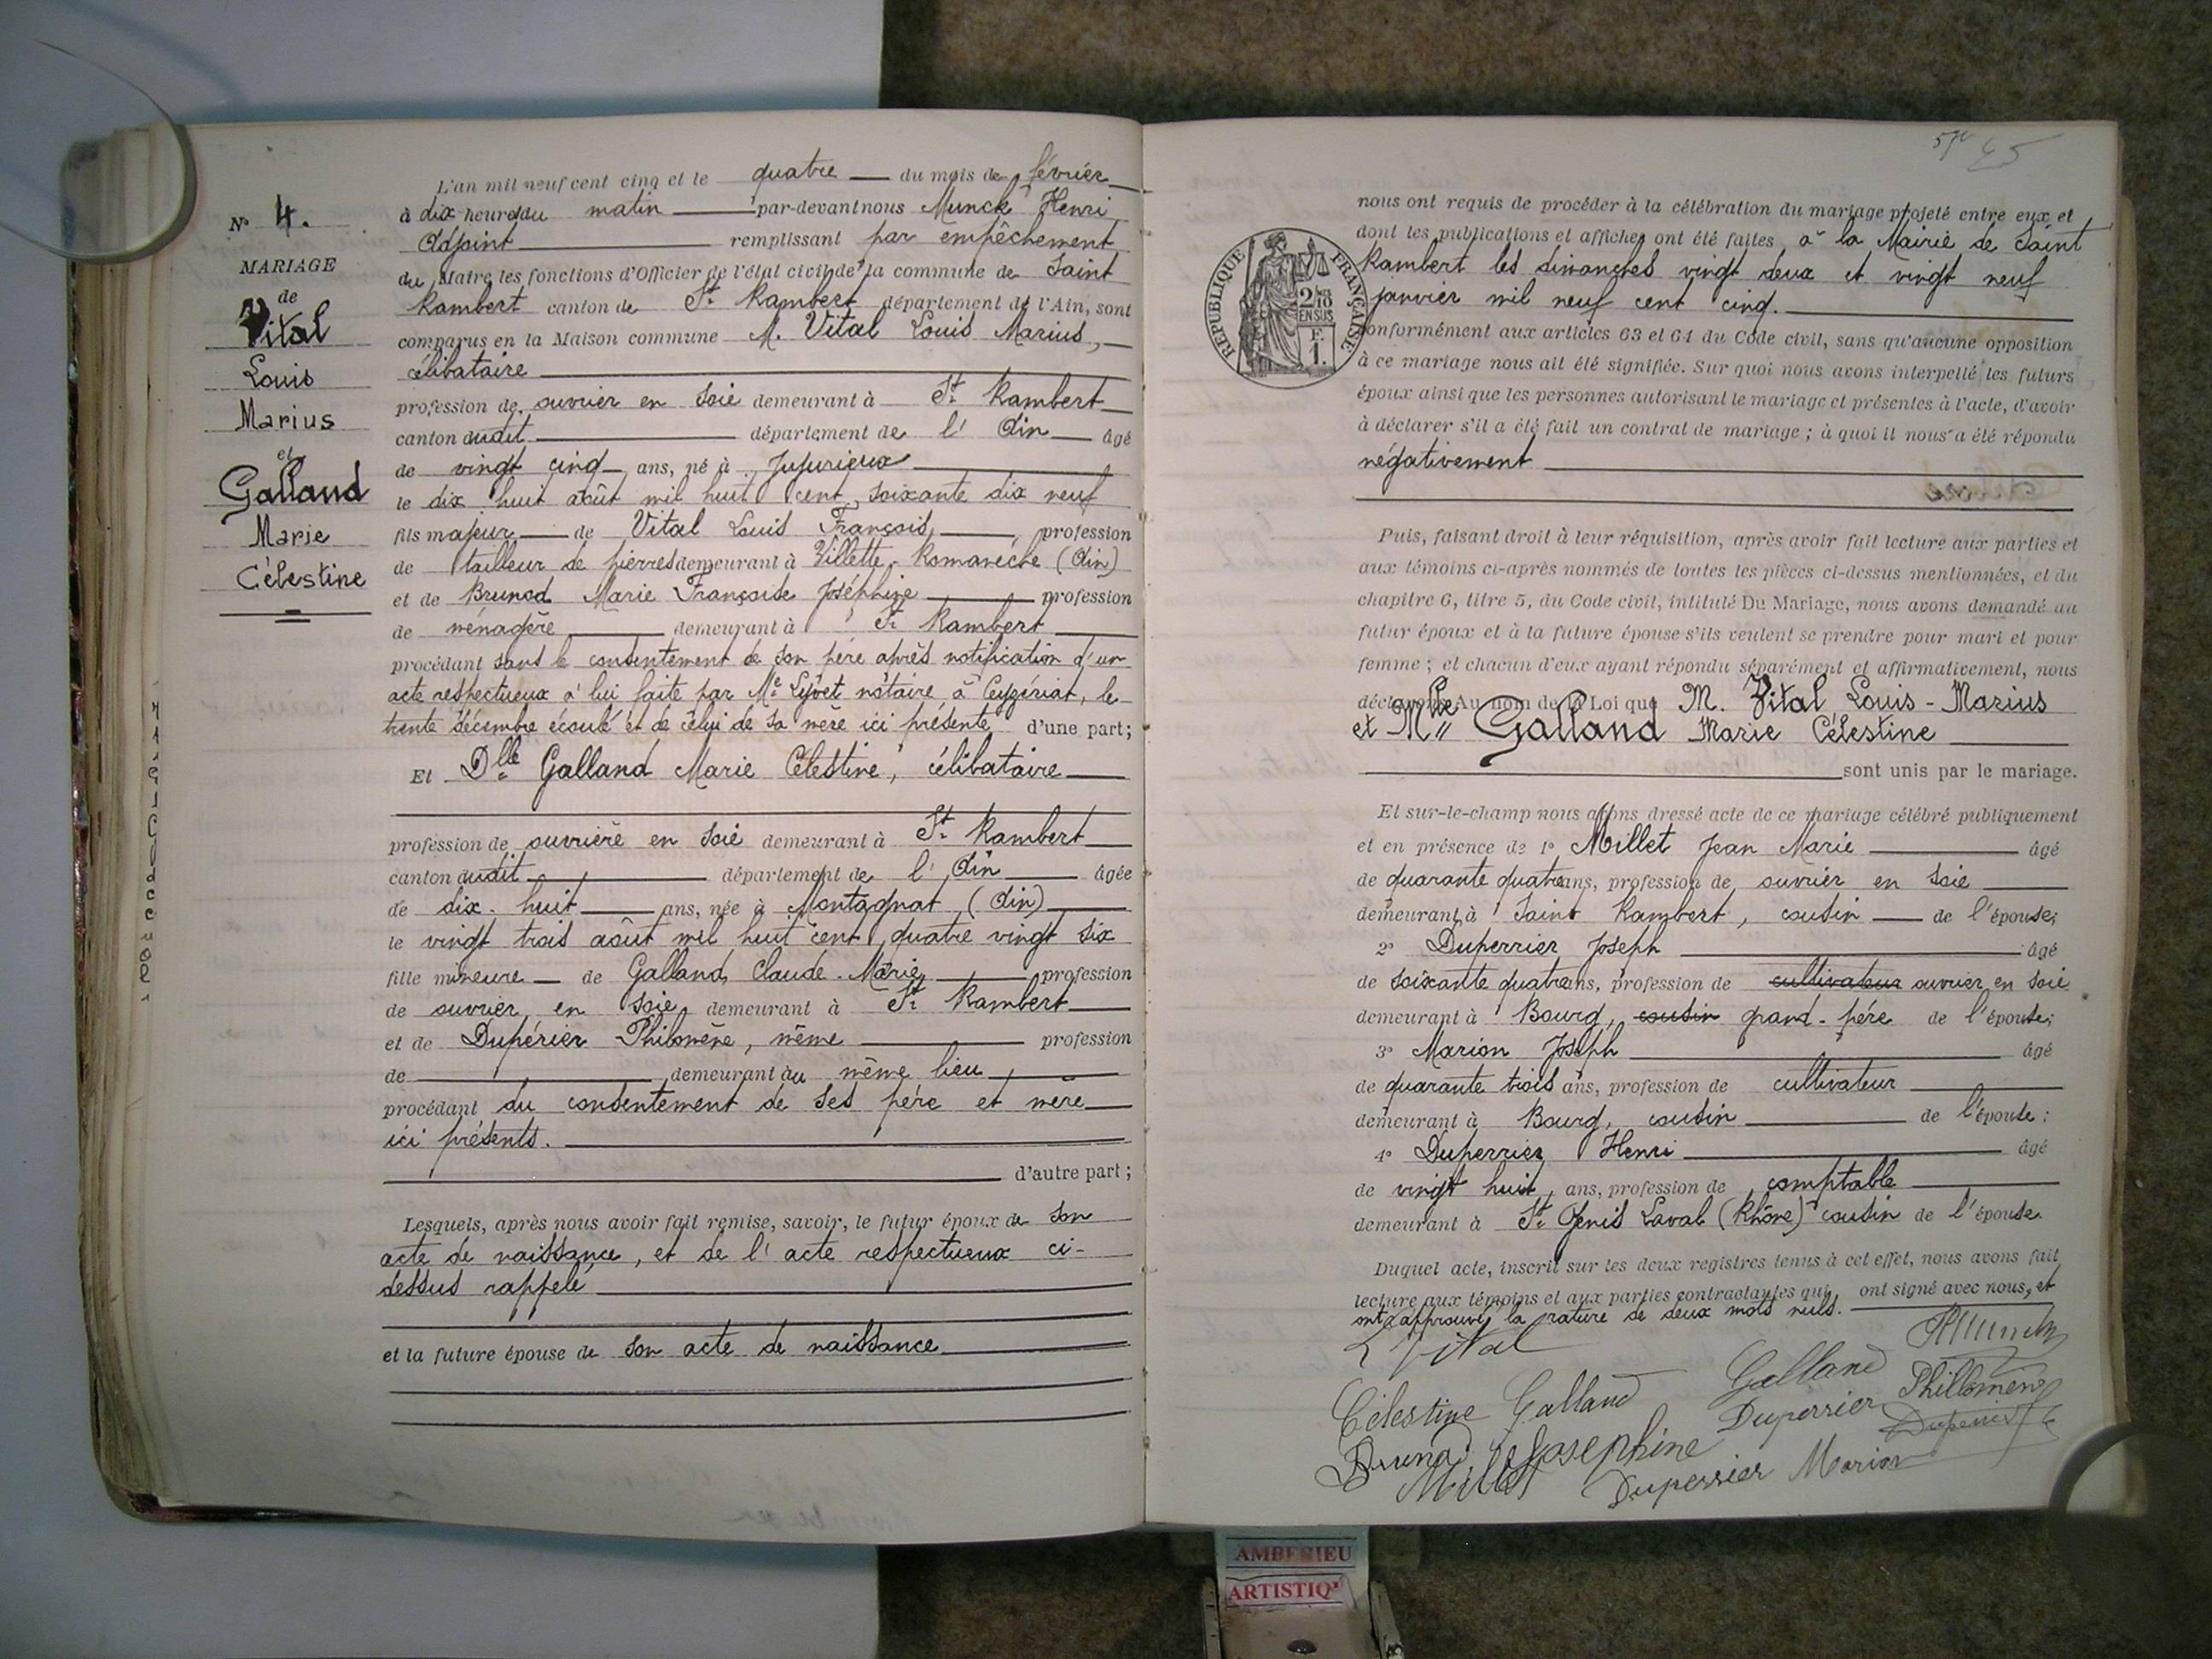 N° 4.
MARIAGE
de
Vital
Louis
Marius
et
Galland
Marie
Célestine
L'an mil neuf cent cinq et le quatre du mois de février
à dix heures du matin par-devant nous Munck Henri
Adjoint remplissant par empêchement
du Maire les fonctions d'Officier de l'état civil de la commune de Saint
Rambert canton de St Rambert département de l'Ain, sont
comparus en la Maison commune M. Vital Louis Marius,
célibataire
profession de ouvrier en soie demeurant à St Rambert
canton dudit département de l'Ain âgé
de vingt cinq ans, né à Jujurieux
le dix huit août mil huit cent soixante dix neuf
fils majeur de Vital Louis François, profession
de tailleur de pierres demeurant à Villette. Romanèche (Ain)
et de Brunod Marie Françoise Joséphine profession
de ménagère demeurant à St Rambert
procédant sans le consentement de son père après notification d'un
acte respectueux à lui faite par Me Lyvet notaire à Ceyzériat, le
trente décembre écoulé et de celui de sa mère ici présente d'une part;
Et Dlle Galland Marie Célestine, célibataire
profession de ouvrière en soie demeurant à St Rambert
canton dudit département de l'Ain âgée
de dix-huit ans, née à Montagnat (Ain)
le vingt trois août mil huit cent quatre vingt six
fille mineure de Galland Claude-Marie, profession
de ouvrier en soie, demeurant à St Rambert
et de Dupérier Philomène, même profession
de demeurant au même lieu
procédant du consentement de ses père et mère
ici présents.
d'autre part;
Lesquels, après nous avoir fait remise, savoir, le futur époux de son
acte de naissance, et de l'acte respectueux ci-
dessus rappelé
et la future épouse de son acte de naissance
45
RÉPUBLIQUE FRANÇAISE
2/10
EN SUS
F.
1.
nous ont requis de procéder à la célébration du mariage projeté entre eux et
dont les publications et affiches ont été faites, à la Mairie de Saint
Rambert les dimanches vingt deux et vingt neuf
janvier mil neuf cent cinq.
conformément aux articles 63 et 64 du Code civil, sans qu'aucune opposition
à ce mariage nous ait été signifiée. Sur quoi nous avons interpellé les futurs
époux ainsi que les personnes autorisant le mariage et présentes à l'acte, d'avoir
à déclarer s'il a été fait un contrat de mariage; à quoi il nous a été répondu
négativement
Puis, faisant droit à leur réquisition, après avoir fait lecture aux parties et
aux témoins ci-après nommés de toutes les pièces ci-dessus mentionnées, et du
chapitre 6, titre 5, du Code civil, intitulé Du Mariage, nous avons demandé au
futur époux et à la future épouse s'ils veulent se prendre pour mari et pour
femme; et chacun d'eux ayant répondu séparément et affirmativement, nous
déclarons Au nom de la Loi que M. Vital Louis-Marius
et Mlle Galland Marie Célestine
sont unis par le mariage.
Et sur-le-champ nous avons dressé acte de ce mariage célébré publiquement
et en présence de 1° Millet Jean Marie âgé
de quarante quatre ans, profession de ouvrier en soie
demeurant à Saint Rambert, cousin de l'épouse;
2° Duperrier Joseph âgé
de soixante quatre ans, profession de cultivateur ouvrier en soie
demeurant à Bourg, cousin grand-père de l'épouse;
3° Marion Joseph âgé
de quarante trois ans, profession de cultivateur
demeurant à Bourg, cousin de l'épouse:
4° Duperrier Henri âgé
de vingt huit ans, profession de comptable
demeurant à St Genis Laval (Rhône) cousin de l'épouse.
Duquel acte, inscrit sur les deux registres tenus à cet effet, nous avons fait
lecture aux témoins et aux parties contractantes qui ont signé avec nous, et
ont approuvé la rature de deux mots nuls.
L Vital
HMunck
Célestine Galland
Galland
Philomène
Duperrier
Brunod Josephine
Millet
Duperrier
Marion
AMBERIEU
ARTISTIQ'